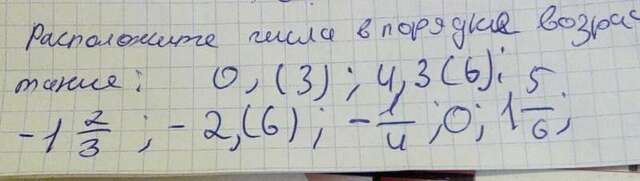 Расположите числа в порядке возрас
тание: 0,(3); 4,3(6);
-1 2/3; -2,(6); -1/4; 0; 1 5/6;